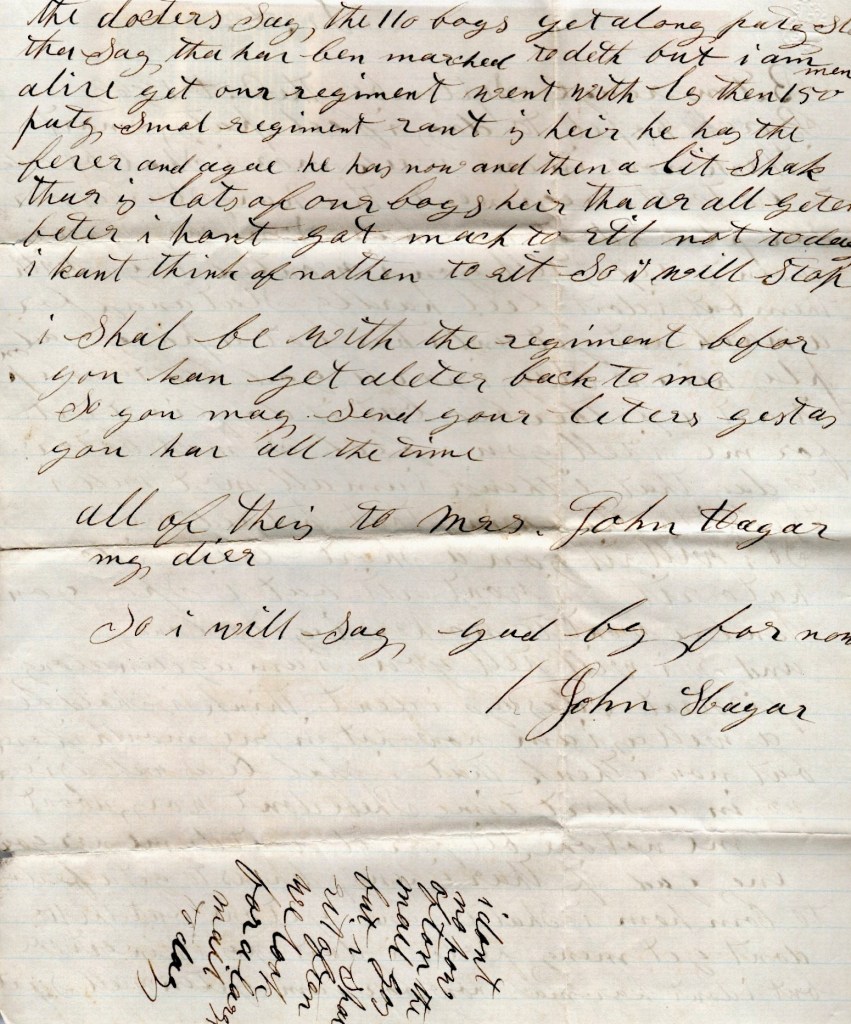 the docters Say, the 110 boys get along paty Slo
tha Say, tha har ben marched to deth but i am
alive yet our regiment went with les then 150 men
paty, Smal regiment rant is heir he has the
fever and agae he has now and then a lit Shak
thar is lots of our boys heir tha ar all geten
beter i hant got mach to rit not today
i kant think of nathen to rit So i will Stop
i Shal be with the regiment befor
you kan get a leter back to me
So you may Send your leters gest as
you har all the time
all of theis to Mrs. John Hagar
my, dier
So i will Say, gud by for now
John Hagar
i dont
no how
often the
mail gos
but i Shal
rit often
we look
for a large
mail
to day